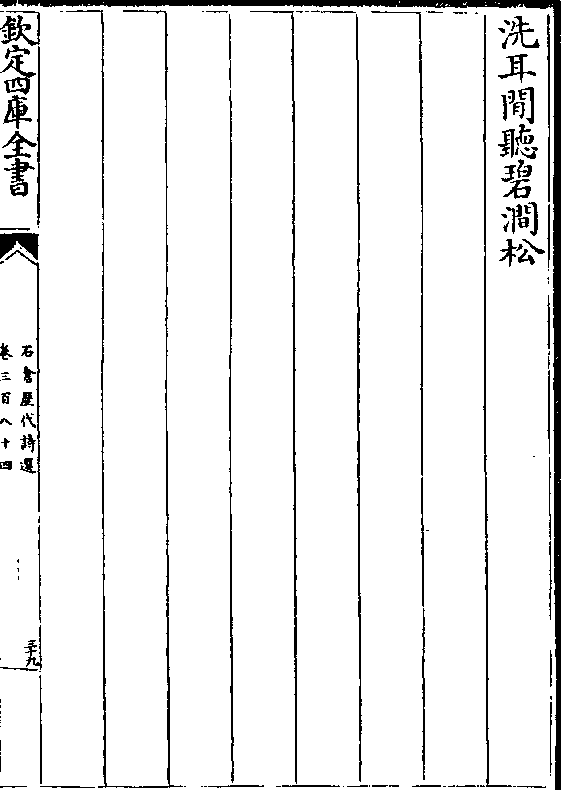 洗耳閒聽碧澗松
欽定四庫全書
石倉歷代詩選
卷三百八十四
三十九